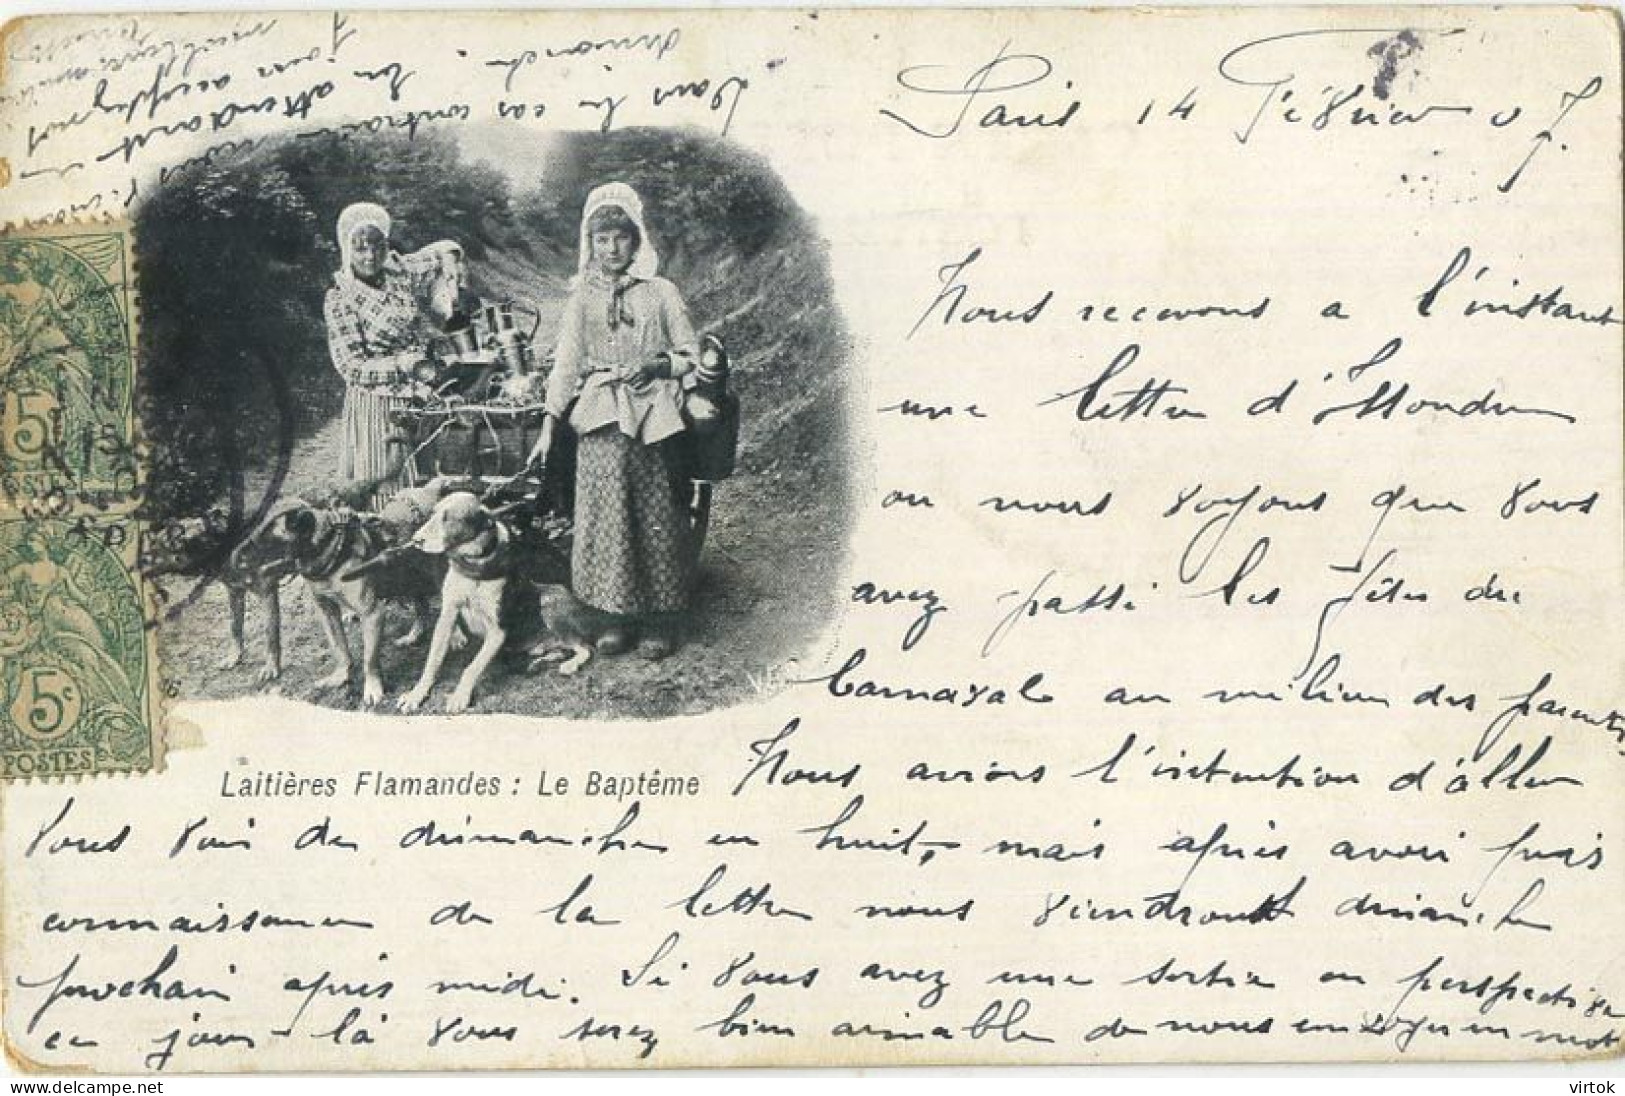 Paris 14 Février 07.
Nous recevons a l'instant
une lettre d'Issoudun
ou nous voyons que vous
avez passé les fêtes du
Carnaval au milieu des parents.
Nous avions l'intention d'aller
vous voir de dimanche en huit, mais après avoir pris
connaissance de la lettre nous viendrons dimanche
prochain après midi. Si vous avez une sortie en perspective
ce jour-là vous serez bien aimable de nous envoyer un mot
dans le cas contraire nous
dimanche. En attendant
jour acceptez nos
meilleures
Laitières Flamandes : Le Baptême
5c
POSTES
5c
POSTES
virtok